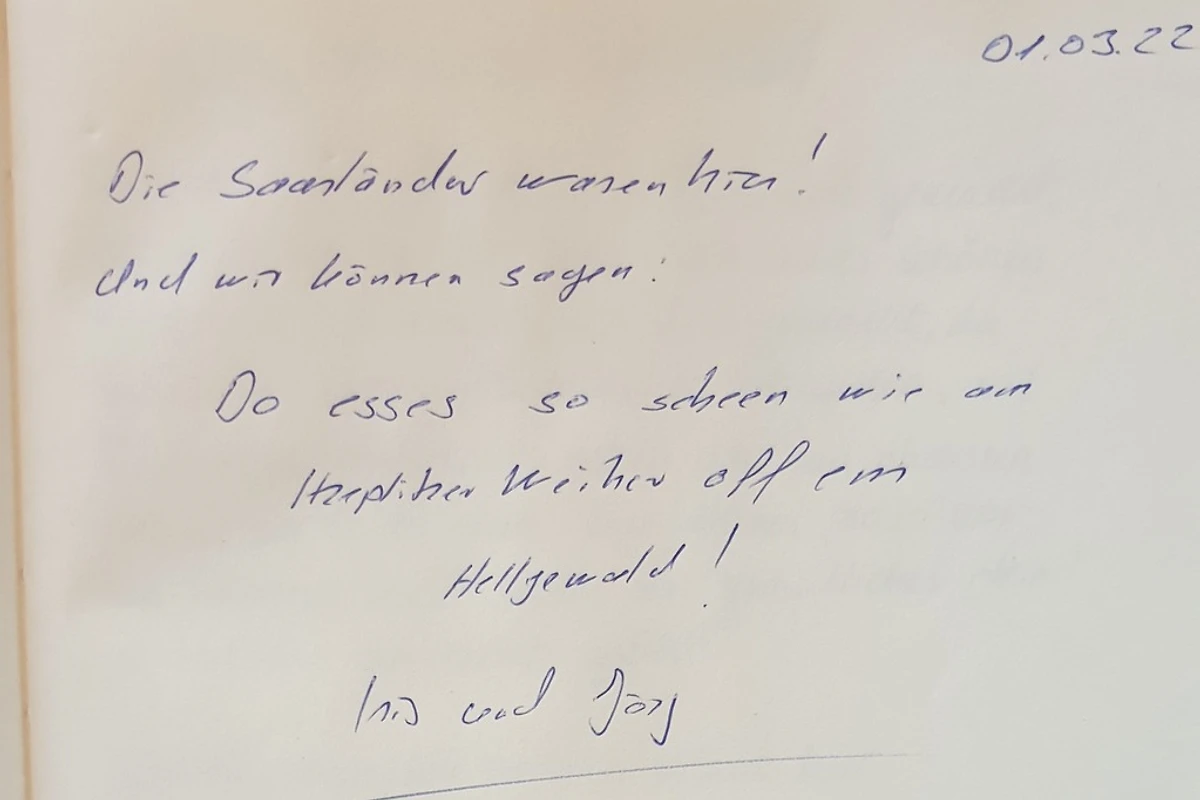 01.03.22
Die Saarländer waren hier!
Und wir können sagen:
Do esses so scheen wie am
Itzeplitzer Weiher off em
Hellgewald!
Iris und Jörg